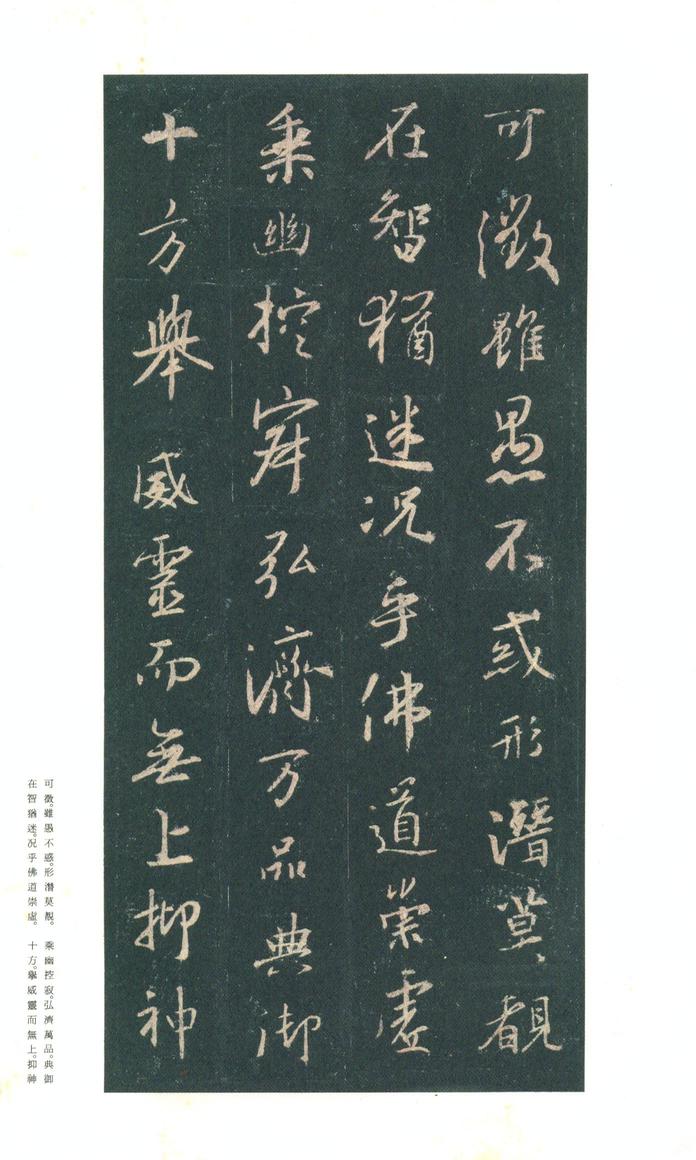 可徵雖愚不惑形潛莫覩
在智猶迷况乎佛道崇虛
乘幽控寂弘濟万品典御
十方舉威靈而無上抑神
可徵。雖愚不惑。形潛莫覩。　乘幽控寂。弘濟萬品。典御
在智猶迷。况乎佛道崇虛。　十方。舉威靈而無上。抑神